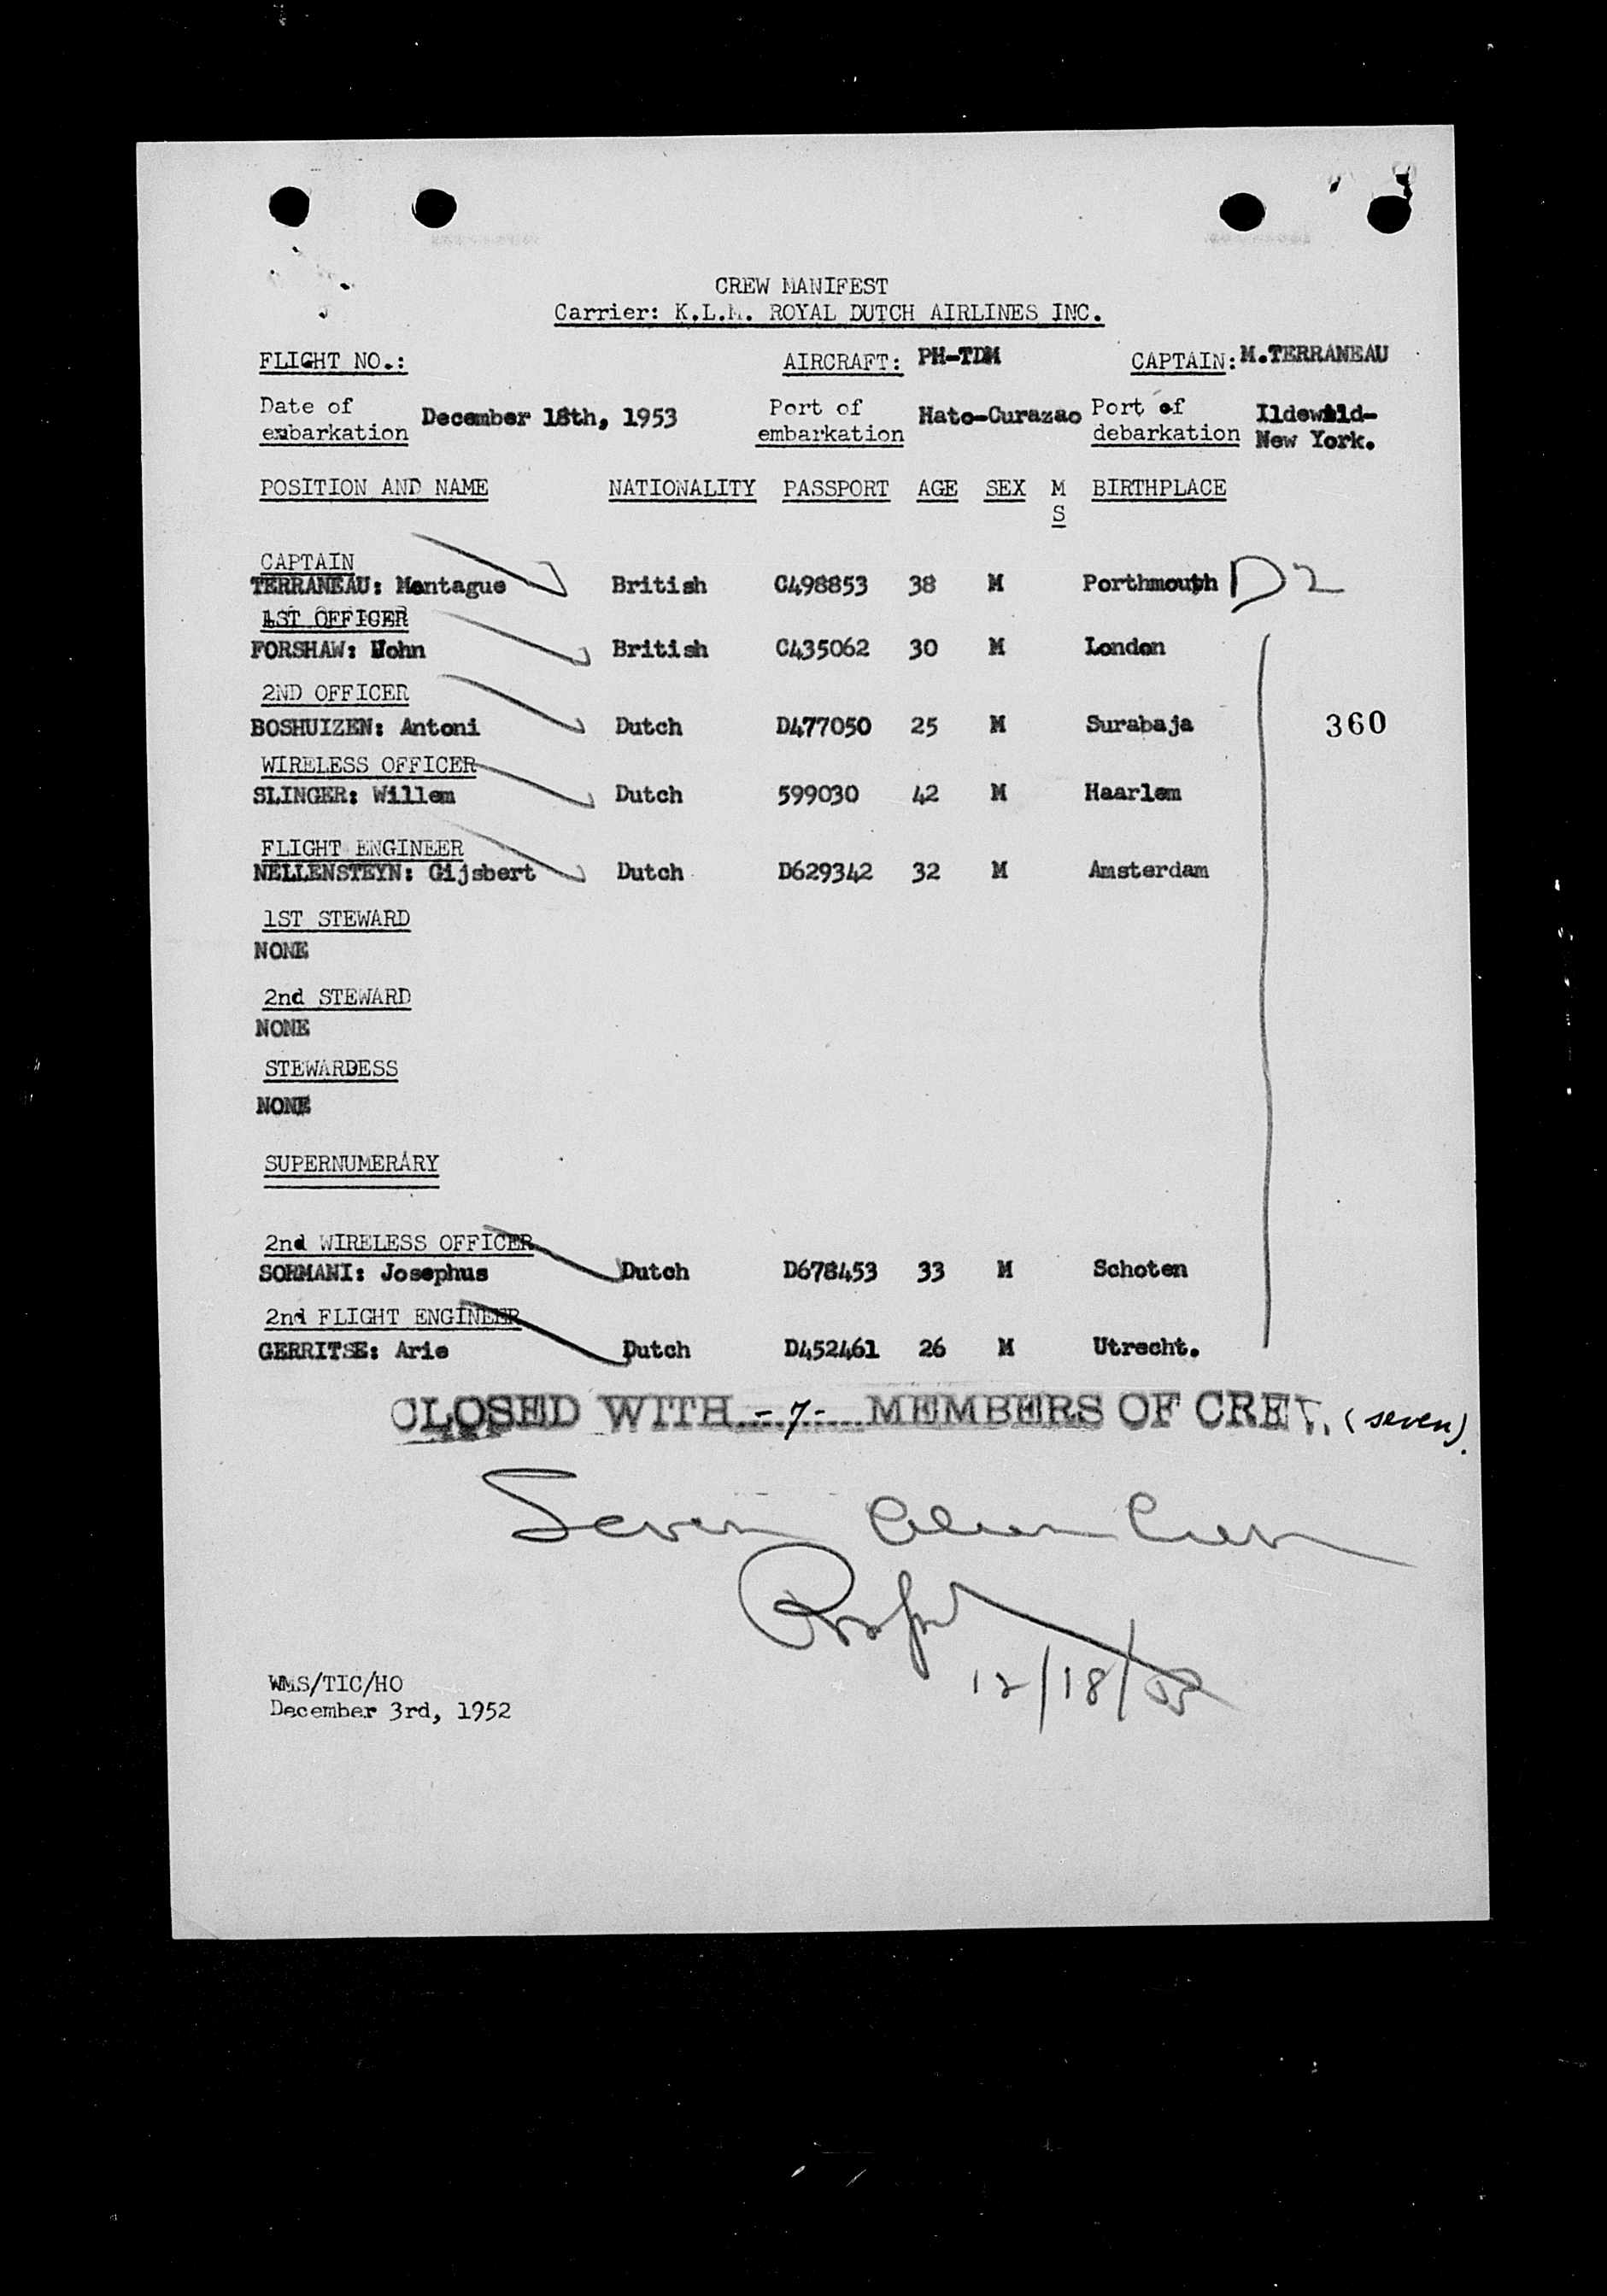 CREW MANIFEST
Carrier: K.L.M. ROYAL DUTCH AIRLINES INC.
FLIGHT NO.: AIRCRAFT: PH-TDM CAPTAIN: M.TERRANEAU
Date of embarkation December 18th, 1953 Port of embarkation Hato-Curazao Port of debarkation Ildewild-New York.
POSITION AND NAME NATIONALITY PASSPORT AGE SEX M S BIRTHPLACE
CAPTAIN
TERRANEAU: Montague British C498853 38 M Porthmouth D2
1ST OFFICER
FORSHAW: John British C435062 30 M London
2ND OFFICER
BOSHUIZEN: Antoni Dutch D477050 25 M Surabaja 360
WIRELESS OFFICER
SLINGER: Willem Dutch 599030 42 M Haarlem
FLIGHT ENGINEER
NELLENSTEYN: Gijsbert Dutch D629342 32 M Amsterdam
1ST STEWARD
NONE
2nd STEWARD
NONE
STEWARDESS
NONE
SUPERNUMERARY
2nd WIRELESS OFFICER
SORMANI: Josephus Dutch D678453 33 M Schoten
2nd FLIGHT ENGINEER
GERRITSE: Arie Dutch D452461 26 M Utrecht.
CLOSED WITH -7- MEMBERS OF CREW. (seven).
Seven Alien Crew
12/18/53
WMS/TIC/HO
December 3rd, 1952